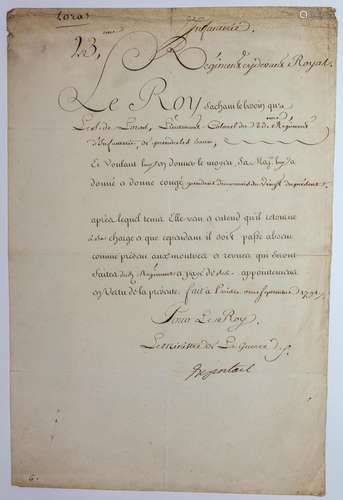 Loras
Infanterie
23.eme Régiment cydevant Royal.
Le Roy sachant le besoin qu'a
Le S. de Loras, Lieutenant Colonel du 23eme Régiment
d'Infanterie, de prendre les eaux,
Et Voulant luy en donner le moyen, Sa Maj. luy a
donné et donne congé pendant deux mois du vingt du présent
après lequel tems Elle veut et entend qu'il retourne
à sa charge et que cependant il soit passé absent
comme présent aux montres et revues qui seront
faites dud. Régiment et payé de ses appointemens
en Vertu de la présente. fait à Paris
Pour Le Roy.
Le ministre de La Guerre